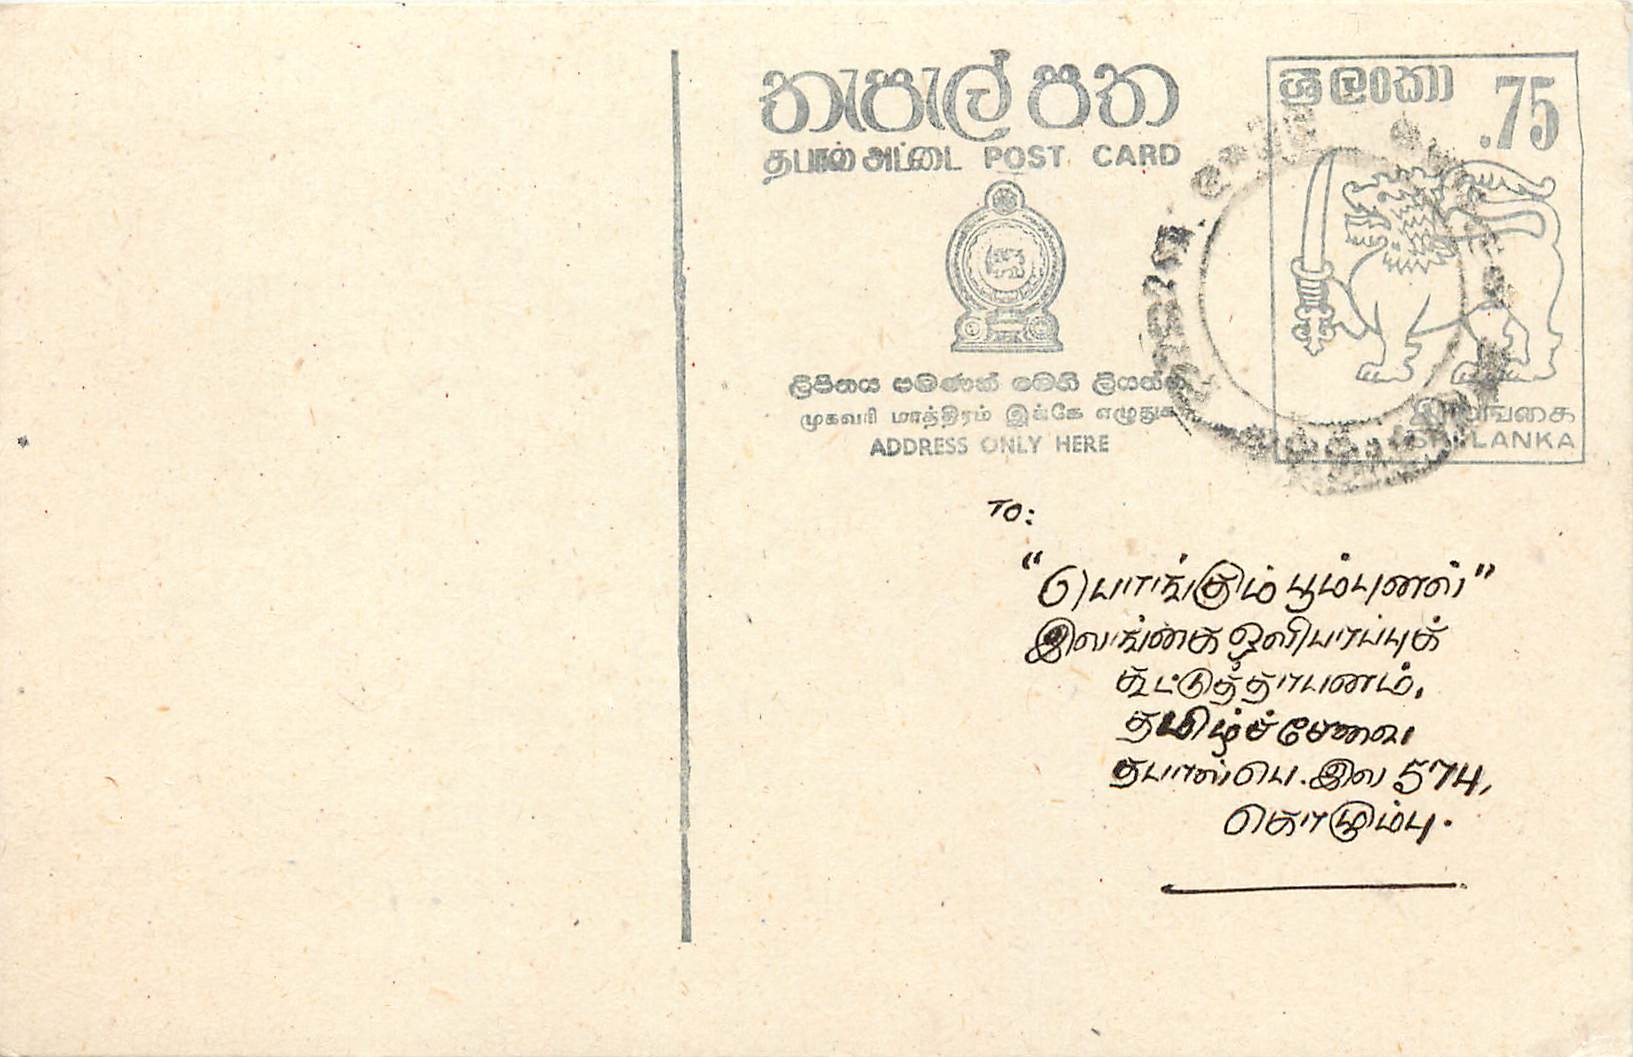 තැපැල් පත
தபால் அட்டை POST CARD
ලිපිනය පමණක් මෙහි ලියන්න
முகவரி மாத்திரம் இங்கே எழுதுக
ADDRESS ONLY HERE
ශ්‍රී ලංකා
.75
இலங்கை
SRI LANKA
TO:
"பொங்கும் பூம்புனல்"
இலங்கை ஒலிபரப்புக்
கூட்டுத்தாபனம்,
தமிழ்ச் சேவை
தபால் பெ. இல 574,
கொழும்பு.